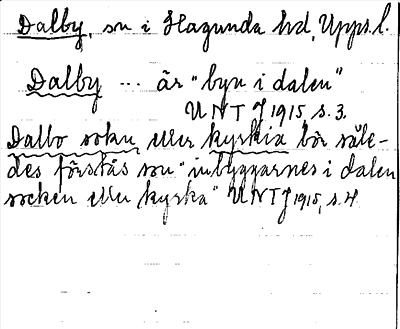 Dalby, sn i Hagunda hd, Upps. l.
Dalby ... är "byn i dalen"
UNT J 1915, s. 3.
Dalbo sokn eller kyrkia bör såle-
des förstås som "inbyggarnes i dalen
socken eller kyrka" UNT J 1915, s. 4